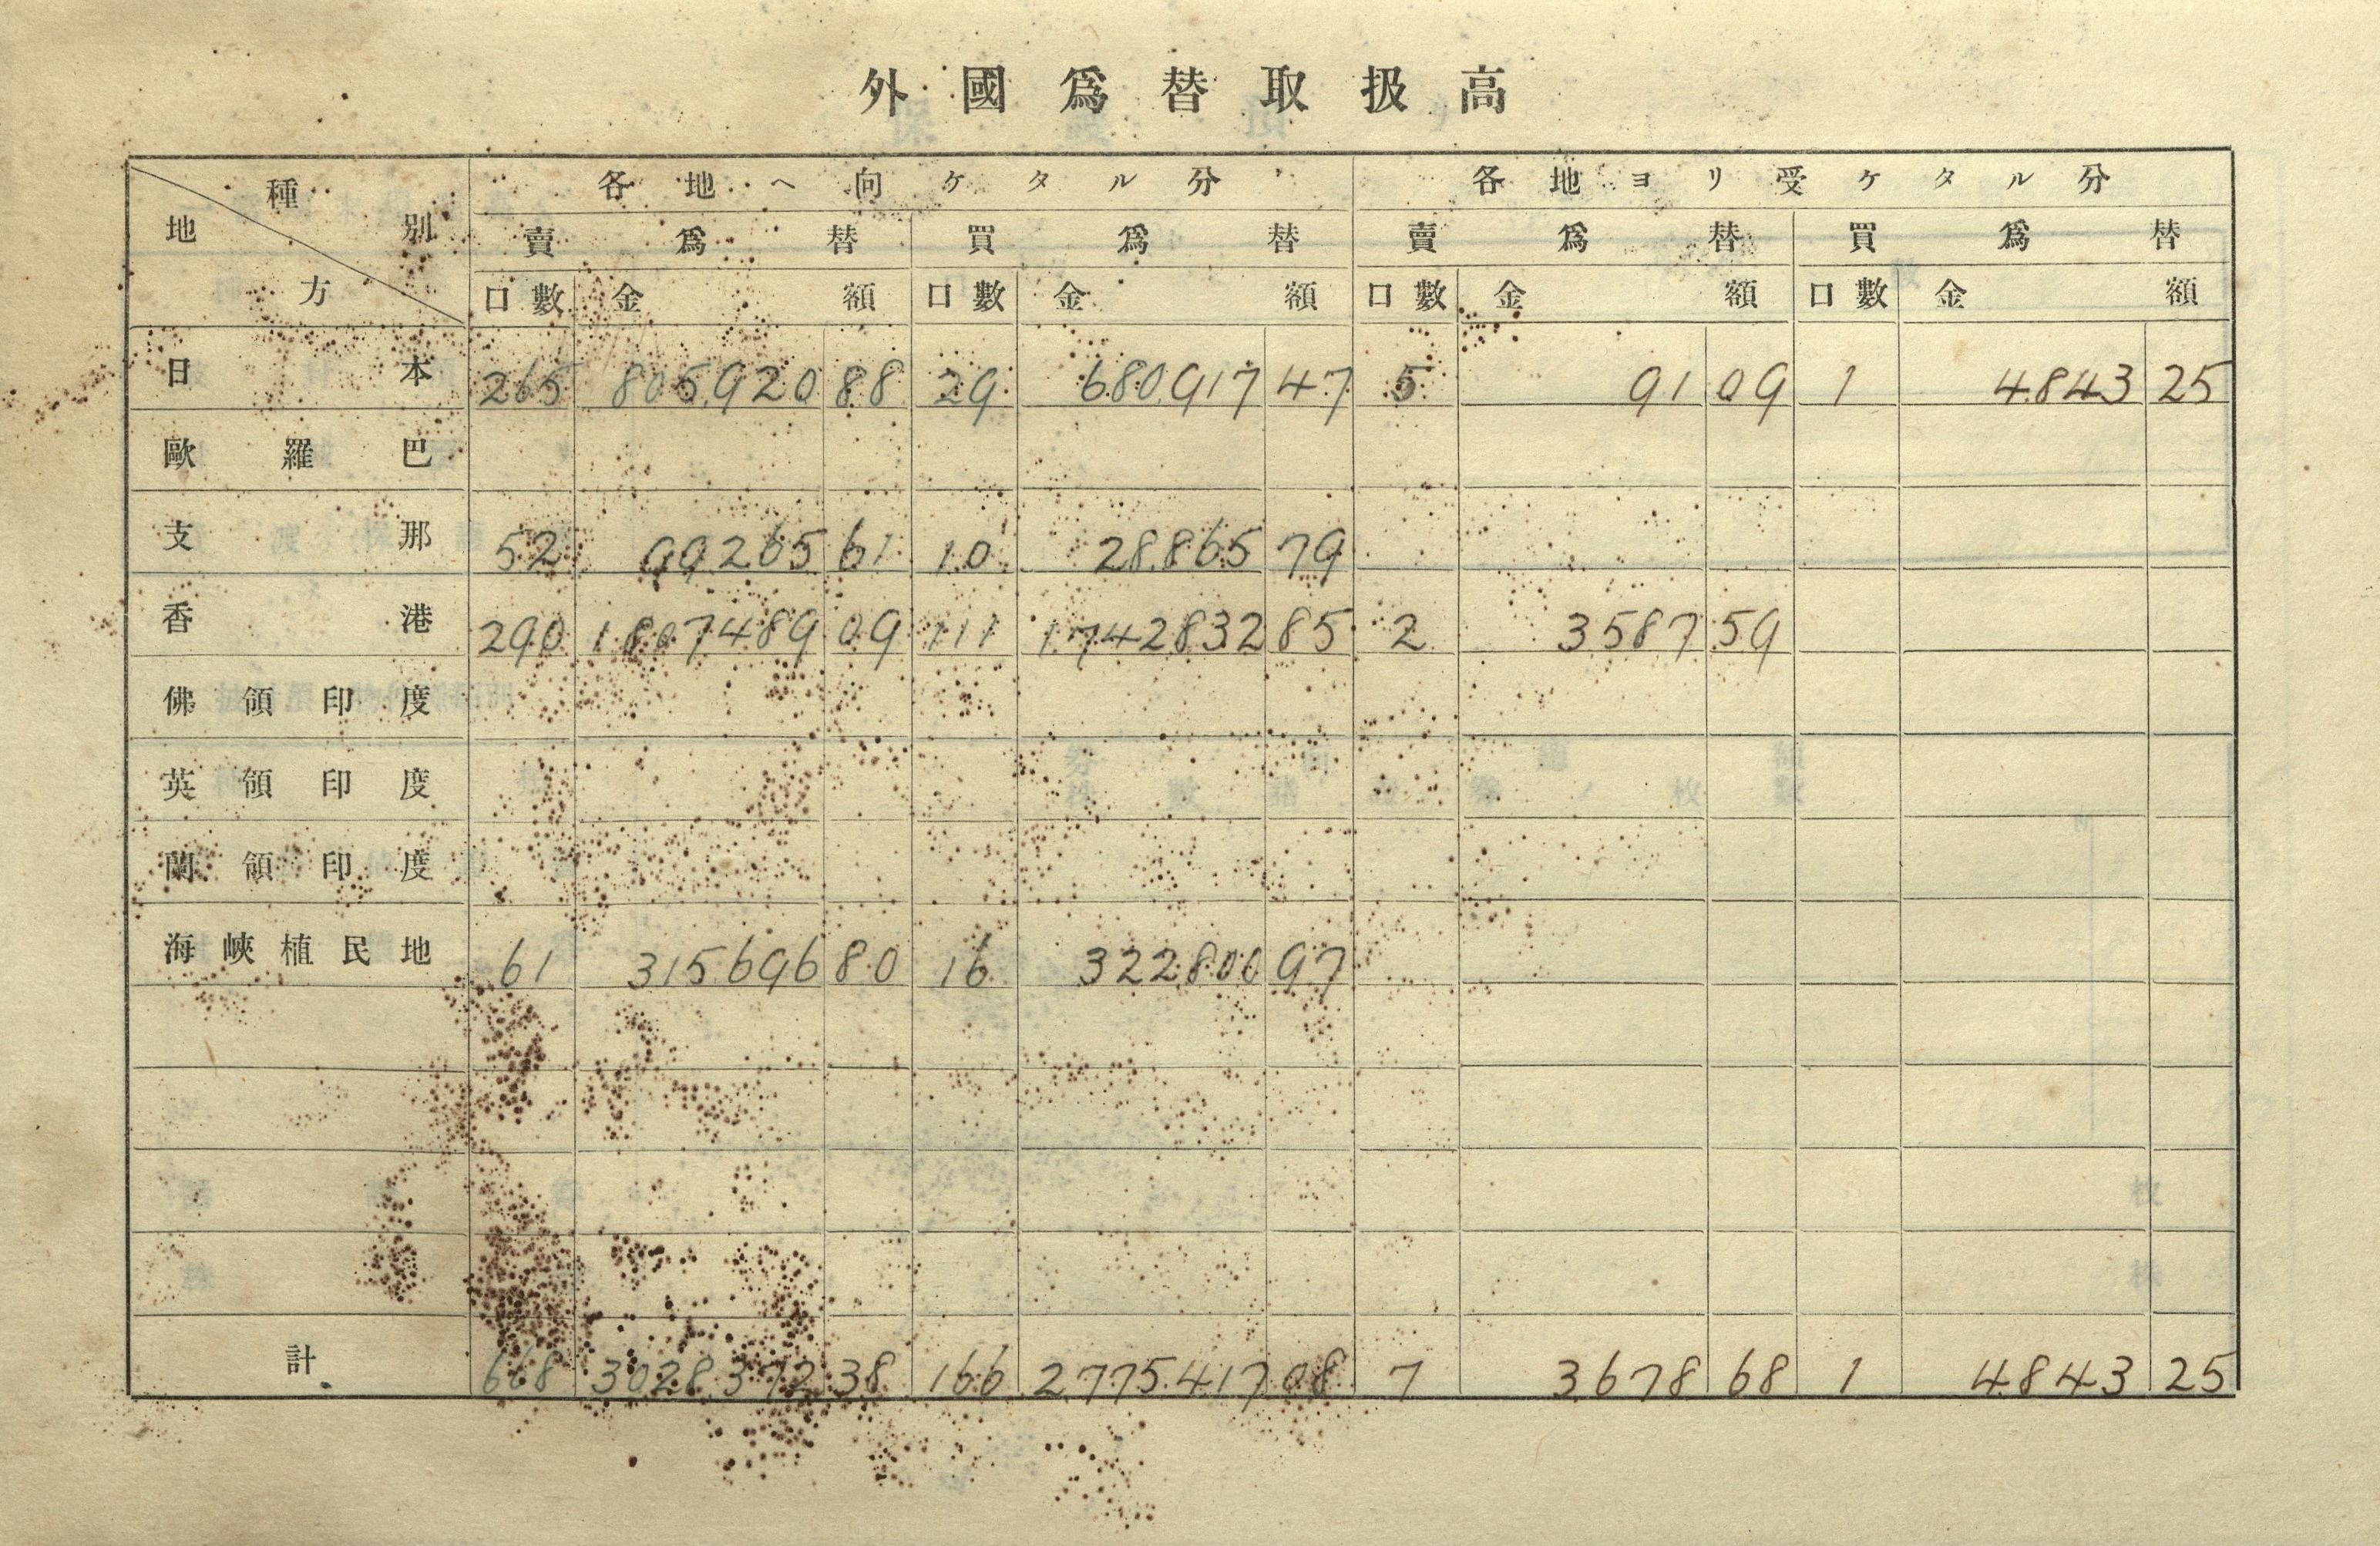 外國爲替取扱高
種別 地方 各地ヘ向ケタル分 各地ヨリ受ケタル分
賣爲替 買爲替 賣爲替 買爲替
口數 金額 口數 金額 口數 金額 口數 金額
日本 265 805920 88 29 680917 47 5 91 09 1 4843 25
歐羅巴
支那 52 99265 61 10 28865 79
香港 290 1807489 09 111 1742832 85 2 3587 59
佛領印度
英領印度
蘭領印度
海峽植民地 61 315696 80 16 322800 97
計 668 3028372 38 166 2775417 08 7 3678 68 1 4843 25